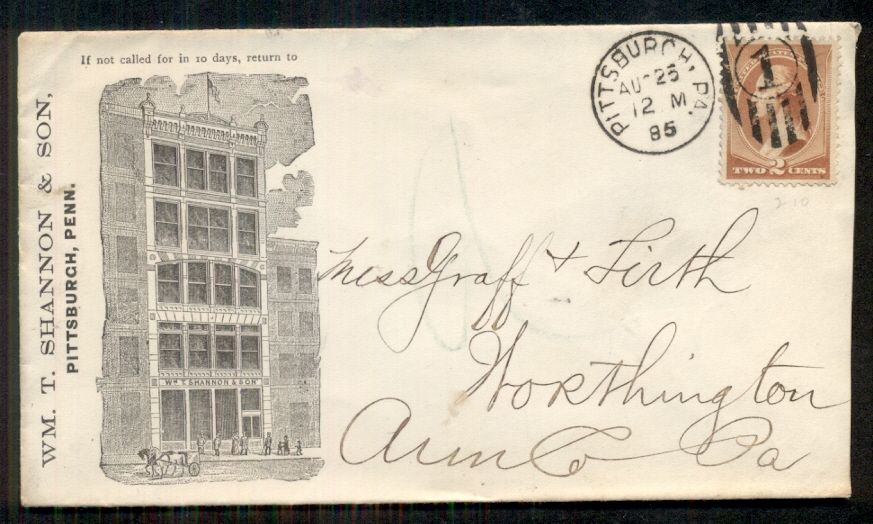 If not called for in 10 days, return to
WM. T. SHANNON & SON,
PITTSBURGH, PENN.
Wm T. SHANNON & SON
PITTSBURGH, PA.
AUG 25
12 M
85
1
TWO 2 CENTS
2-10
Mess Graff & Firth
Worthington
Arm Co Pa